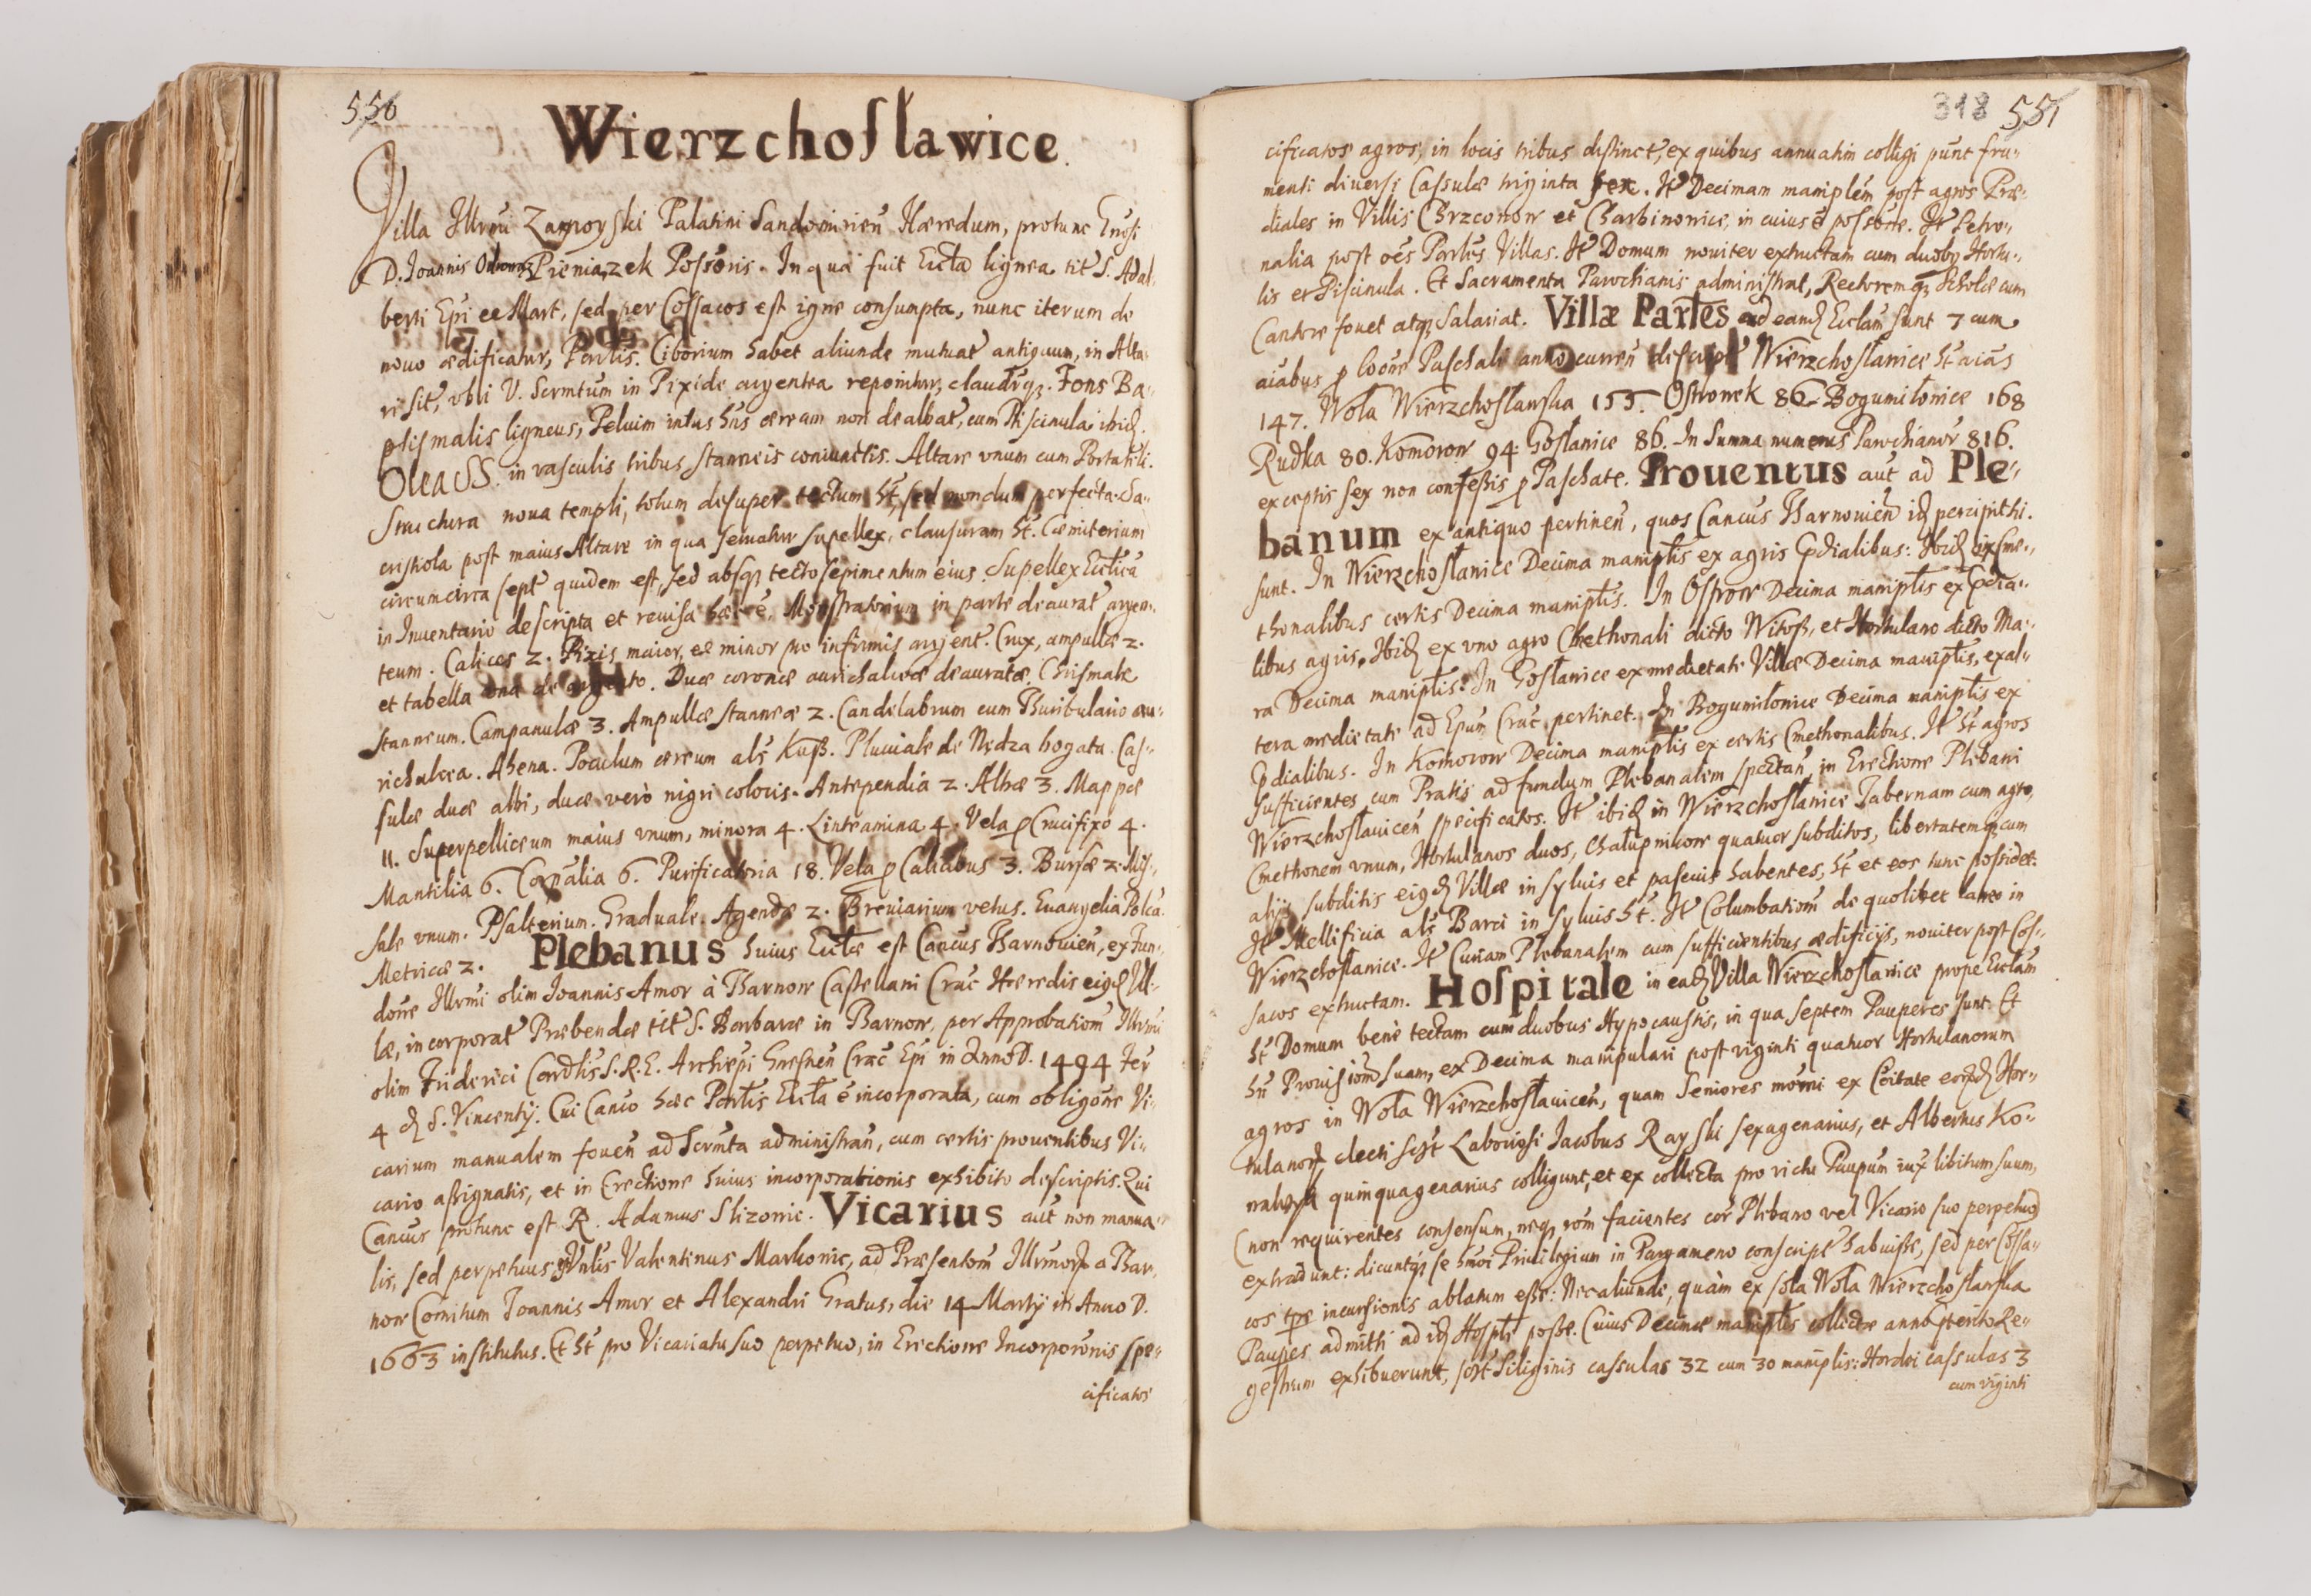 550
Wierzchosławice.
Villa Illrmi Zamoyski Palatini Sandomirien Hæredum, protunc Gnosi
D. Joannis Pieniązek Possoris. In qua fuit Eccla lignea tit S. Adal-
berti Epi et Mart, sed per Cossacos est igne consumpta, nunc iterum de
nouo ædificatur, Ciborium habet aliunde mutuat antiquum, in Alta-
ri sit, vbi V. Scrmtum in Pixide argentea reponitur, claudrq3. Fons Ba-
ptismalis ligneus, Peluim intus hns æream non dealbat, cum Piscinula ibid.
Olea SS. in vasculis tribus stanneis coniunctis. Altare vnum cum Portatili.
Structura noua templi, totum desuper tectum ht, sed nondum perfecta. Sa-
cristiola post maius Altare in qua seruatur supellex, clausuram ht. Cæmiterium
circumcirca sept quidem est, sed absq3 tecto sepimentum eius. Supellex Ecclica
in Inuentario descripta et reuisa hæc e. Monstratorium in parte deaurat argen-
teum. Calices 2. Pixis maior, et minor pro infirmis argent. Crux, ampullæ 2.
et tabella una de argento. Duæ coronæ aurichalceæ deauratæ. Chrismale
stanneum. Campanulæ 3. Ampullæ stanneæ 2. Candelabrum cum Thuribulario au-
richalcea. Ahena. Poculum æreum als Kuß. Pluuiale de Nędza bogata. Cas-
sulæ duæ albi, duæ verò nigri coloris. Antependia 2. Albæ 3. Mappæ
11. Superpelliceum maius vnum, minora 4. Linteamina 4. Vela p Crucifixo 4.
Mantilia 6. Corpalia 6. Purificatoria 18. Vela p Calicibus 3. Bursæ 2. Mis-
sale vnum. Psalterium. Graduale. Agendæ 2. Breuiarium vetus. Euangelia Polca.
Metricæ 2. Plebanus huius Ecclæ est Cancus Tharnouien, ex Fun-
done Illrmi olim Joannis Amor à Tharnow Castellani Crac Hæredis eigd Vil-
læ, incorporat Præbendæ tit S. Barbaræ in Tharnow, per Approbationm Illrmi
olim Friderici Cardlis S.R.E. Archiepi Gnesnen Crac Epi in Anno D. 1494 Fer
4 d S. Vincentij. Cui Canco hæc Partis Eccla e incorporata, cum obligone Vi-
carium manualem fouen ad Scrmta administran, cum certis prouentibus Vi-
cario assignatis, et in Erectione huius incorporationis exhibito descriptis. Qui
Cancus protunc est R. Adamus Slizowic. Vicarius aut non manua-
lis, sed perpetuus Valentinus Markowic, ad Præsentom Illrmor a Thar-
now Comitum Joannis Amor et Alexandri Gratus, die 14 Martij in Anno D.
1663 institutus. Et ht pro Vicariatu suo perpetuo, in Erectione Incorporonis spe-
cificatos
318 551
cificatos agros, in locis tribus distinct, ex quibus annuatim colligi punt fru-
menti diuersi Cassulæ triginta sex. It Decimam maniplem post agros Præ-
diales in Villis Chrzconow et Charbinowice, in cuius e possone. It Petro-
nalia post oes Partes Villas. It Domum nouiter extructam cum duobq Hortu-
lis et Piscinula. Et Sacramenta Parochianis administrat, Rectoremq3 Scholæ cum
Cantore fouet atq3 Salariat. Villæ Partes ad eand Ecclam sunt 7 cum
aiabus p Paschali anno curren descript Wierzchosławice ht aias
147. Wola Wierzchosławska 155. Ostrowek 86. Bogumiłowice 168
Rudka 80. Komorow 94 Gosławice 86. In Summa numerus Parochianor 816.
exceptis sex non confessis p Paschate. Prouentus aut ad Ple-
banum ex antiquo pertinen, quos Cancus Tharnouien id percipit hi
sunt. In Wierzchosławice Decima maniplis ex agris Pdialibus: Ibid ex Cme-
thonalibus certis Decima maniplis. In Ostrow Decima maniplis ex Pdia-
libus agris. Ibid ex vno agro Cmethonali dicto Witoß, et Hortulano dicto Ma-
ra Decima maniplis. In Gosławice ex medietate Villæ Decima maniplis, ex al-
tera medietate ad Epum Crac pertinet. In Bogumiłowice Decima maniplis ex
Pdialibus. In Komorow Decima maniplis ex certis Cmethonalibus. It ht agros
sufficientes cum Pratis ad fundum Plebanalem spectan, in Erectione Plebani
Wierzchosławicen specificatos. It ibid in Wierzchosławice Tabernam cum agro,
Cmethonem vnum, Hortulanos duos, Chałupnikow quatuor subditos, libertatemq3 cum
alijs subditis eigd Villæ in syluis et pascuis habentes, ht et eos tunc possidet.
It Mellificia als Barci in syluis ht. It Columbationm de quolibet laneo in
Wierzchosławice. It Curiam Plebanalem cum sufficientibus ædificijs, nouiter post Cos-
sacos extructam. Hospitale in ead Villa Wierzchosławice prope Ecclam
ht Domum benè tectam cum duobus Hypocaustis, in qua septem Pauperes sunt. Et
hn Prouisionm suam, ex Decima manipulari post viginti quatuor Hortulanorum
agros in Wola Wierzchosławicen, quam Seniores moerni ex Coitate eord Hor-
tulanor electi sclt Laboriosi Jacobus Rayski sexagenarius, et Albertus Ko-
quinquagenarius colligunt, et ex collecta pro victu Paupum iux libitum suum,
(non requirentes consensum, neq3 rom facientes cor Plebano vel Vicario suo perpetuo)
extradunt: dicuntq3 se hmoi Priuilegium in Pargameno conscript habuisse, sed per Cossa-
cos tpe incursionis ablatum esse: Nec aliunde, quàm ex sola Wola Wierzchosławska
Paupes admitti ad id Hosple posse. Cuius Decimæ maniplis collectæ anno pterito Re-
gestrum exhibuerunt, sclt Siliginis cassulas 32 cum 30 maniplis: Hordei cassulas 3
cum viginti